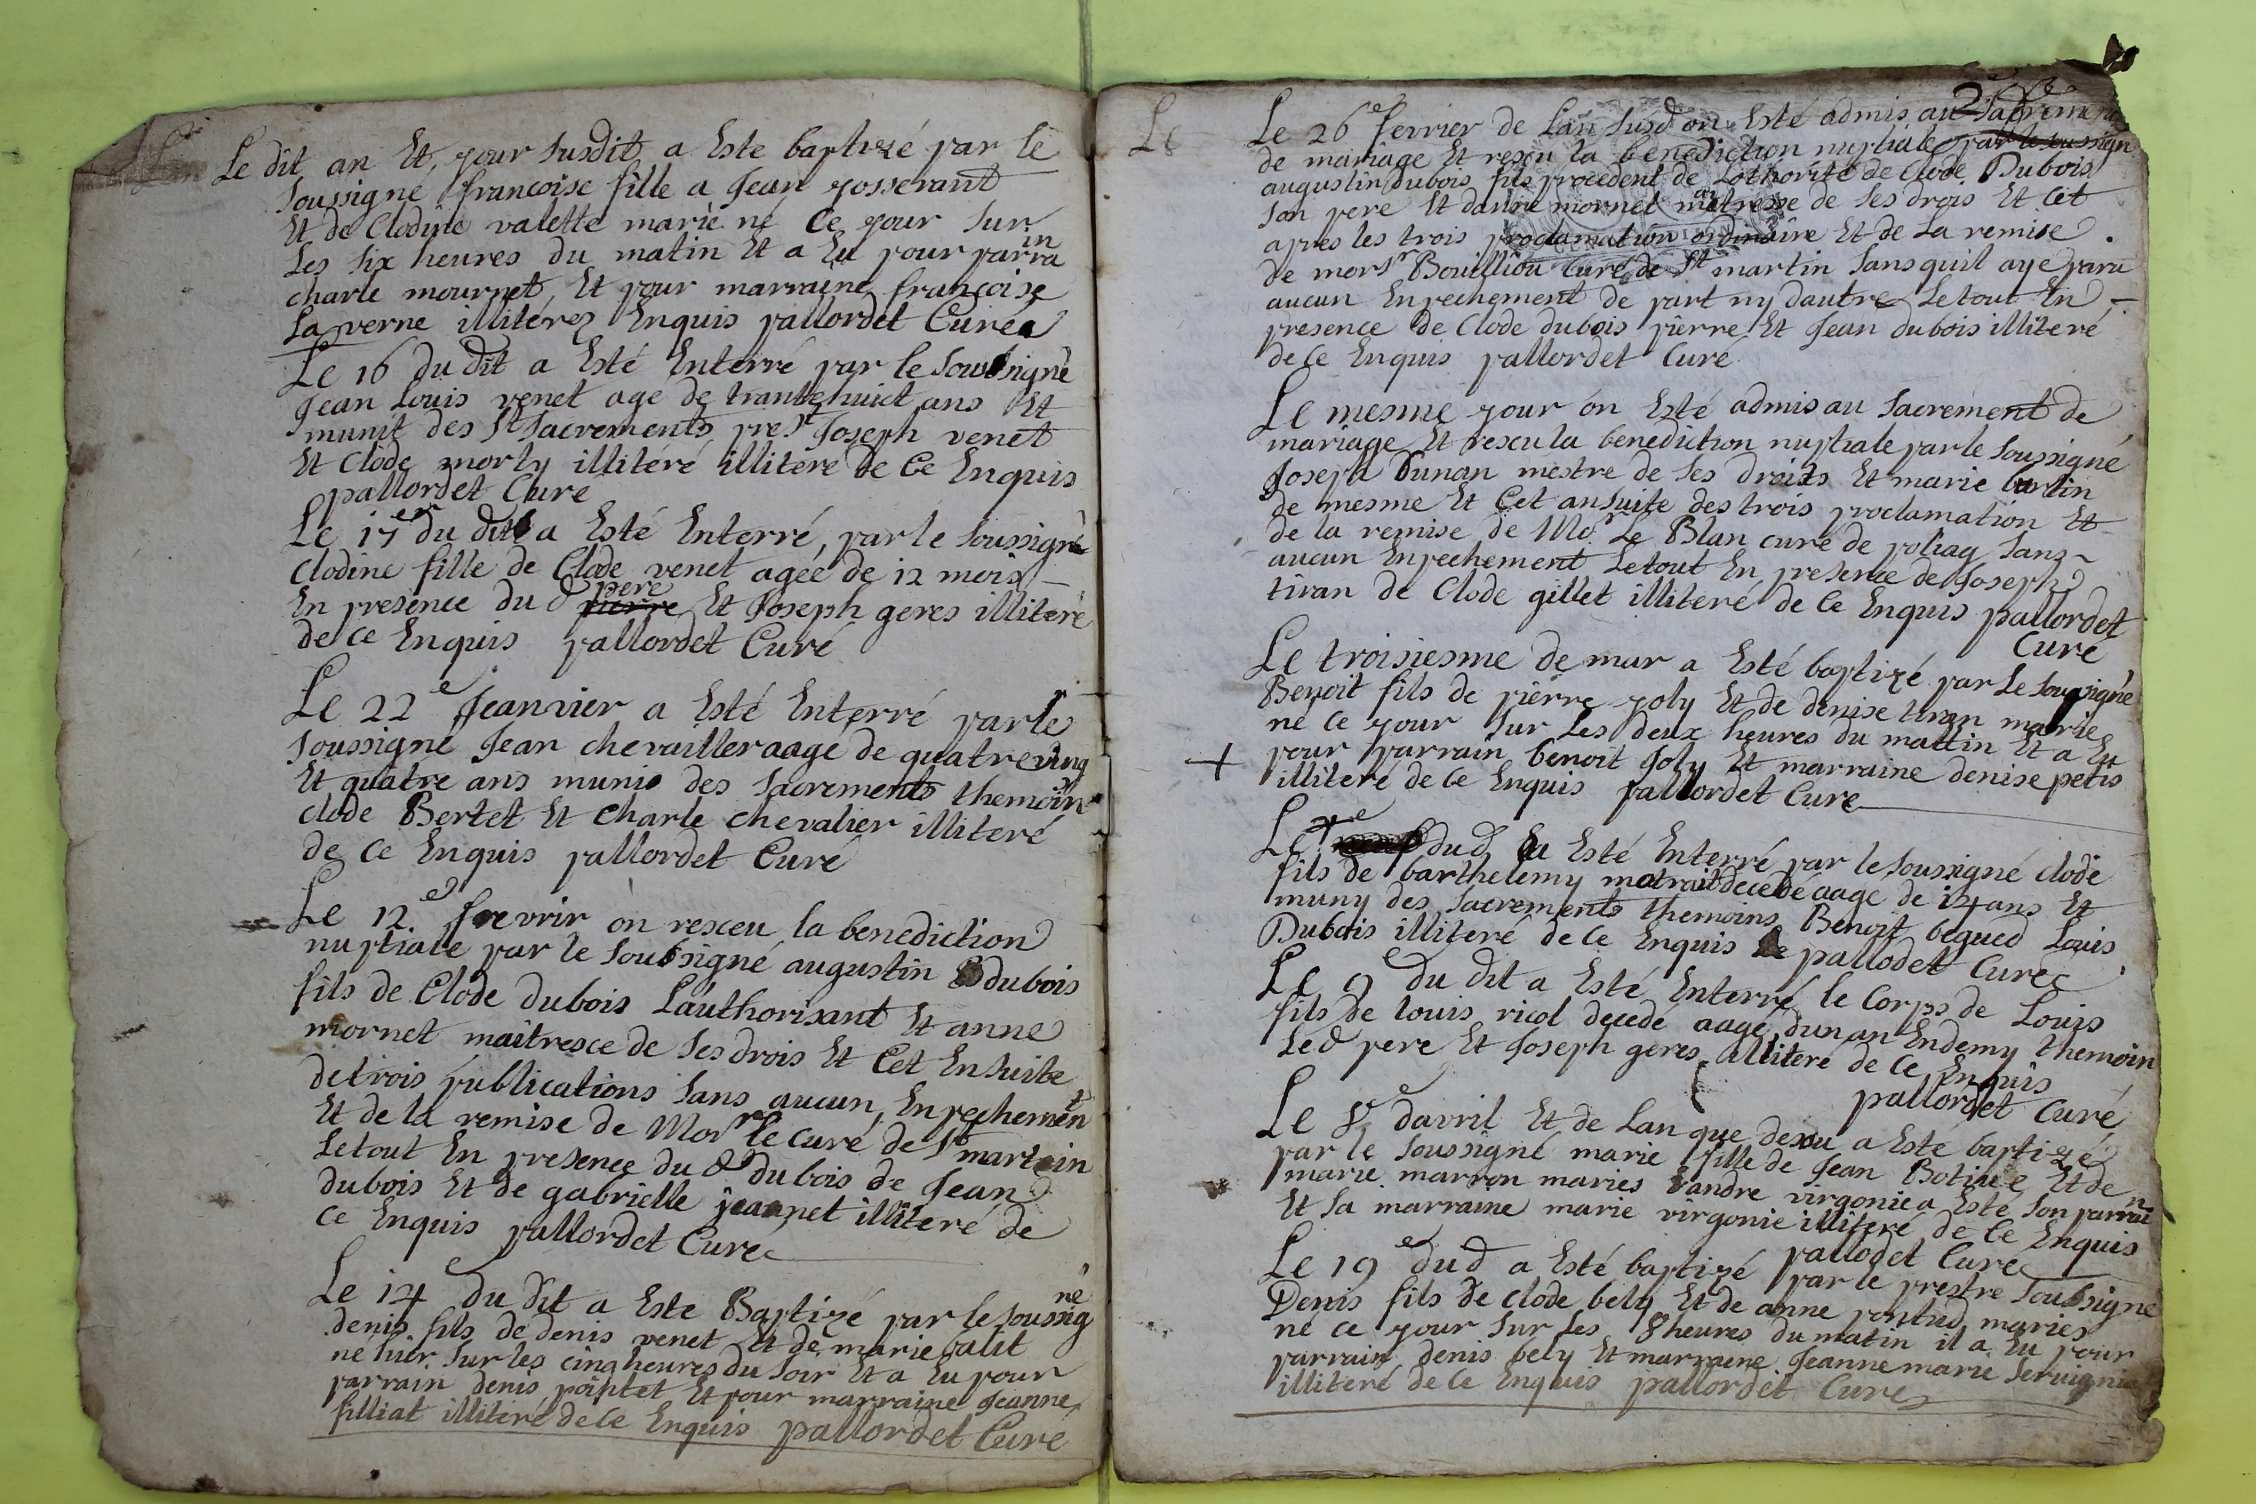 Le dit an Et jour susdit a Este baptizé par le
soussigné francoise fille a Jean josserant
Et de Clodine valette marié né Ce jour sur
Les six heures du matin Et a Eu pour parrain
charle mournet Et pour marraine francoise
Laverne illiterez Enquis pallordet Curé
Le 16 du dit a Esté Enterré par le soussigné
Jean Louis venet agé de trante huict ans Et
munit des St Sacrements prest Joseph venet
Et Clode morly illitéré illiteré de Ce Enquis
pallordet Curé
Le 17em du dit a Esté Enterré par le soussigné
Clodine fille de Clode venet agée de 12 mois
En presence du d pierre pere Et Joseph geres illiteré
de ce Enquis pallordet Curé
Le 22e Jeanvier a Esté Enterré par le
soussigné Jean chevailler aagé de quatre ving
Et quatre ans munis des sacrements themoin
clode Bertet Et Charle chevalier illiteré
de Ce Enquis pallordet Curé
Le 12e fevrir on resceu la benediction
nuptiale par le soubsigné augustin dubois
fils de Clode dubois Lauthorisant Et anne
mornet maitresce de ses drois Et Cet Ensuite
de trois publications sans aucun Enpechement
Et de la remise de Monr le curé de St martin
Letout En presence du d dubois de Jean
dubois Et de gabrielle jeannet illiteré de
Ce Enquis pallordet Curé
Le 14e du dit a Este Baptizé par le soussigné
denis fils de denis venet Et de marie valit
né hier sur les cinq heures du soir Et a Eu pour
parrain denis pointet Et pour marraine Jeanne
filliat illiteré de Ce Enquis pallordet Curé
Le
2e
Le 26e fevrier de Lan susd on Esté admis au Sacrement
de mariage Et resçu la benediction nuptiale par le soussign
augustin dubois fils procedent de Lothorité de Clode Dubois
son pere Et danne mornet maitresse de ses drois Et Cet
apres les trois proclamation ordinaire Et de La remise
de monsr Bouilliou Curé de St martin sans quil aye paru
aucun Enpechement de part ny dautre Letout En
presence de Clode dubois pierre Et Jean dubois illiteré
de Ce Enquis pallordet Curé
Le mesme jour on Esté admis au sacrement de
mariage Et rescu la benediction nuptiale par le soussigné
Joseph Dunan mestre de ses droits Et marie bertin
de mesme Et Cet ansuite des trois proclamation Et
de la remise de Mor Le Blan curé de poliag sans
aucun Enpechement Letout En presence de Joseph
tiran de Clode gillet illiteré de Ce Enquis pallordet
Curé
Le troisiesme de mar a Esté baptizé par Le soussigné
Benoit fils de pierre joly Et de denise tiran marie
né ce jour sur Les deux heures du mattin Et a Eu
+ pour parrain benoit Joly Et marraine denise petis
illiteré de Ce Enquis pallordet Cure
Le 4e du d a Esté Enterré par le soussigné clode
fils de barthelemy matrait decedé aagé de 14 ans Et
muny des sacrements themoins Benoit begued Louis
Dubois illiteré de Ce Enquis pallodet Curé
Le 9e du dit a Esté Enterré le Corps de Louis
fils de louis ricol decedé aagé dun an Endemy themoin
Le d pere Et Joseph geres illiteré de Ce Enquis
pallordet Curé
Le 8e davril Et de Lan que desu a Esté baptizé
par le soussigné marie fille de Jean Botine Et de
marie marron maries Eandre virgonie a Este son parrain
Et sa marraine marie virgonie illiteré de Ce Enquis
pallodet Cure
Le 19e du d a Esté baptizé par le prestre soubsigne
Denis fils de clode bely Et de anne pontud maries
né ce jour sur Les 8 heures du matin il a Eu pour
parrain denis bely Et marraine Jeanne marie servignia
illiteré de Ce Enquis pallordet Cure